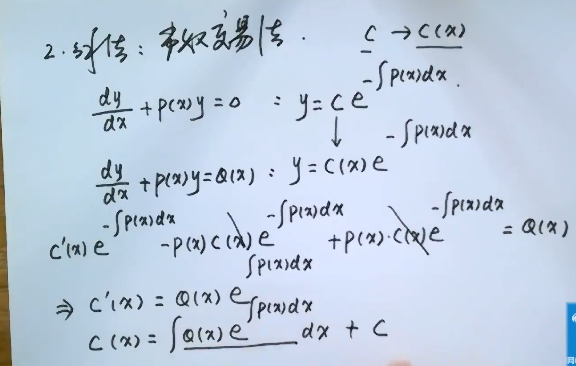 2. 解法：常数变易法. C → C(x)
dy/dx + P(x)y = 0 : y = C e^{-∫P(x)dx}.
↓
dy/dx + P(x)y = Q(x) : y = C(x) e^{-∫P(x)dx}
C'(x) e^{-∫P(x)dx} - P(x) C(x) e^{-∫P(x)dx} + P(x)·C(x) e^{-∫P(x)dx} = Q(x)
⇒ C'(x) = Q(x) e^{∫P(x)dx}
C(x) = ∫ Q(x) e^{∫P(x)dx} dx + C